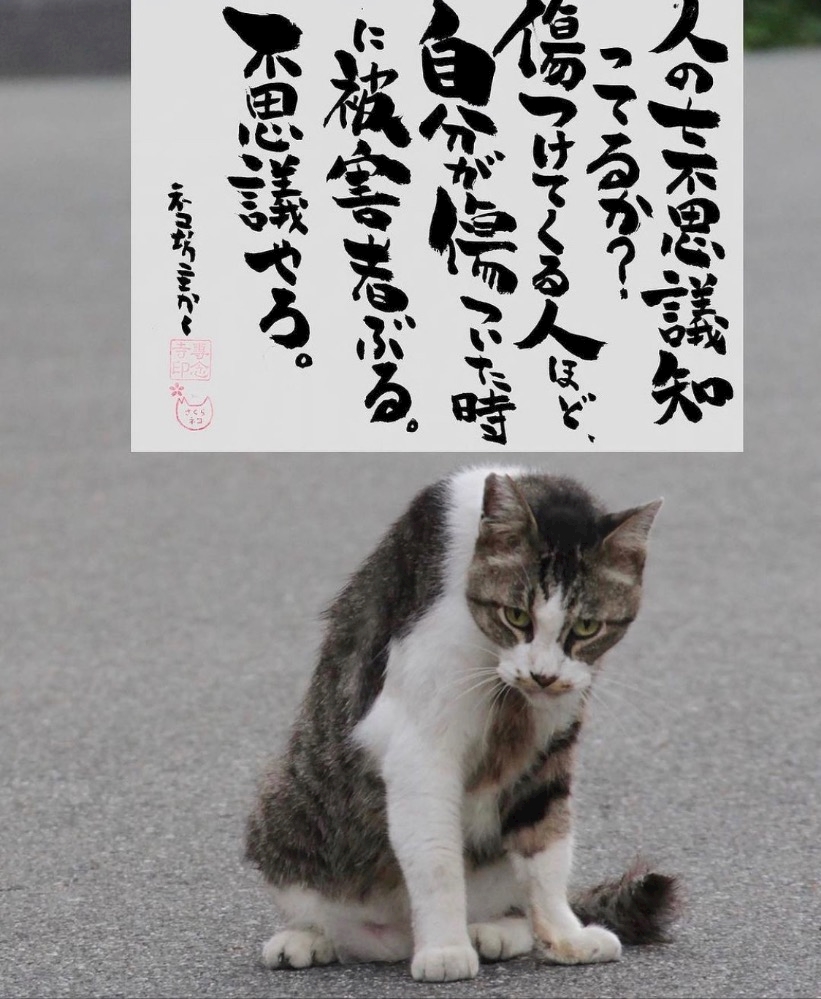 人の七不思議知
ってるか？
傷つけてくる人ほど、
自分が傷ついた時
に被害者ぶる。
不思議やろ。
ネコ坊主かく
専念
寺印
さくら
ネコ